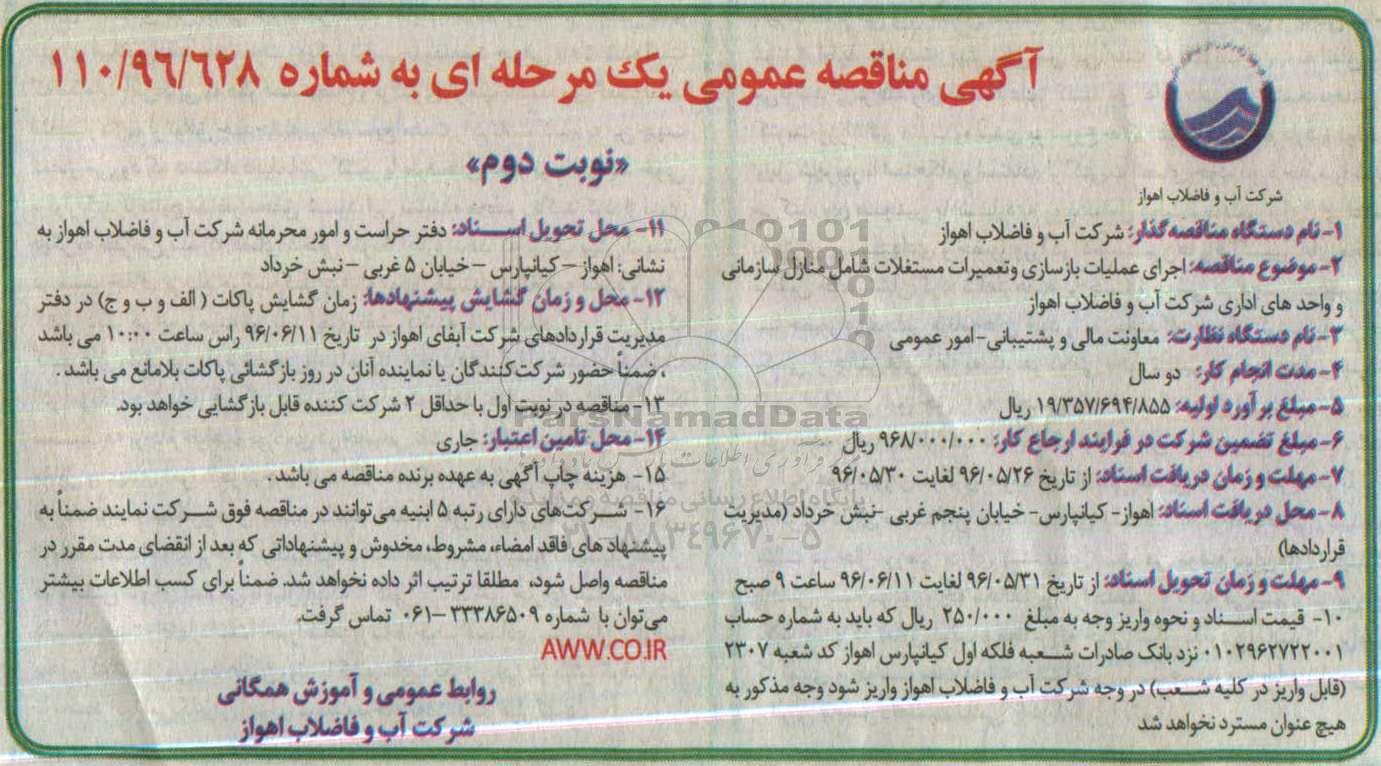 آگهی مناقصه عمومی یک مرحله ای به شماره ۱۱۰/۹۶/۶۲۸
«نوبت دوم»
شرکت آب و فاضلاب اهواز
۱- نام دستگاه مناقصه گذار: شرکت آب و فاضلاب اهواز
۲- موضوع مناقصه: اجرای عملیات بازسازی وتعمیرات مستغلات شامل منازل سازمانی
و واحد های اداری شرکت آب و فاضلاب اهواز
۳- نام دستگاه نظارت: معاونت مالی و پشتیبانی- امور عمومی
۴- مدت انجام کار: دو سال
۵- مبلغ برآورد اولیه: ۱۹/۳۵۷/۶۹۴/۸۵۵ ریال
۶- مبلغ تضمین شرکت در فرایند ارجاع کار: ۹۶۸/۰۰۰/۰۰۰ ریال
۷- مهلت و زمان دریافت اسناد: از تاریخ ۹۶/۰۵/۲۶ لغایت ۹۶/۰۵/۳۰
۸- محل دریافت اسناد: اهواز- کیانپارس- خیابان پنجم غربی -نبش خرداد (مدیریت
قراردادها)
۹- مهلت و زمان تحویل اسناد: از تاریخ ۹۶/۰۵/۳۱ لغایت ۹۶/۰۶/۱۱ ساعت ۹ صبح
۱۰- قیمت اسناد و نحوه واریز وجه به مبلغ ۲۵۰/۰۰۰ ریال که باید به شماره حساب
۰۱۰۲۹۶۲۷۲۲۰۰۱ نزد بانک صادرات شعبه فلکه اول کیانپارس اهواز کد شعبه ۲۳۰۷
(قابل واریز در کلیه شعب) در وجه شرکت آب و فاضلاب اهواز واریز شود وجه مذکور به
هیچ عنوان مسترد نخواهد شد
۱۱- محل تحویل اسناد: دفتر حراست و امور محرمانه شرکت آب و فاضلاب اهواز به
نشانی: اهواز – کیانپارس – خیابان ۵ غربی – نبش خرداد
۱۲- محل و زمان گشایش پیشنهادها: زمان گشایش پاکات ( الف و ب و ج) در دفتر
مدیریت قراردادهای شرکت آبفای اهواز در تاریخ ۹۶/۰۶/۱۱ راس ساعت ۱۰:۰۰ می باشد
، ضمناً حضور شرکت کنندگان یا نماینده آنان در روز بازگشائی پاکات بلامانع می باشد .
۱۳- مناقصه در نوبت اول با حداقل ۲ شرکت کننده قابل بازگشایی خواهد بود.
۱۴- محل تامین اعتبار: جاری
۱۵- هزینه چاپ آگهی به عهده برنده مناقصه می باشد .
۱۶- شرکت‌های دارای رتبه ۵ ابنیه می‌توانند در مناقصه فوق شرکت نمایند ضمناً به
پیشنهاد های فاقد امضاء، مشروط، مخدوش و پیشنهاداتی که بعد از انقضای مدت مقرر در
مناقصه واصل شود، مطلقا ترتیب اثر داده نخواهد شد. ضمناً برای کسب اطلاعات بیشتر
می‌توان با شماره ۳۳۳۸۶۵۰۹ –۰۶۱ تماس گرفت.
AWW.CO.IR
روابط عمومی و آموزش همگانی
شرکت آب و فاضلاب اهواز
ParsNamadData
۰۲۱-۸۸۳۴۹۶۷۰-۵